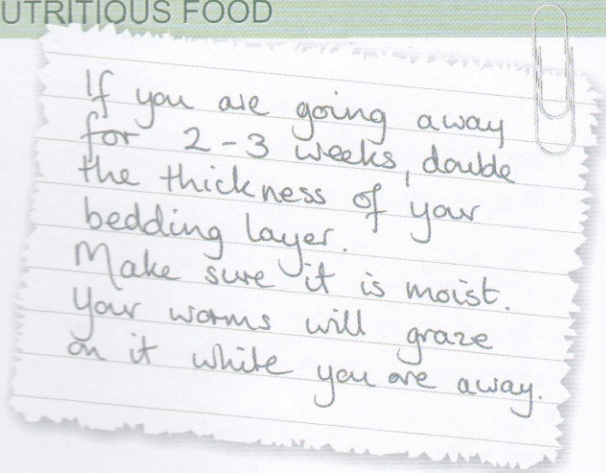 UTRITIOUS FOOD
If you are going away
for 2-3 weeks, double
the thickness of your
bedding layer.
Make sure it is moist.
Your worms will graze
on it while you are away.